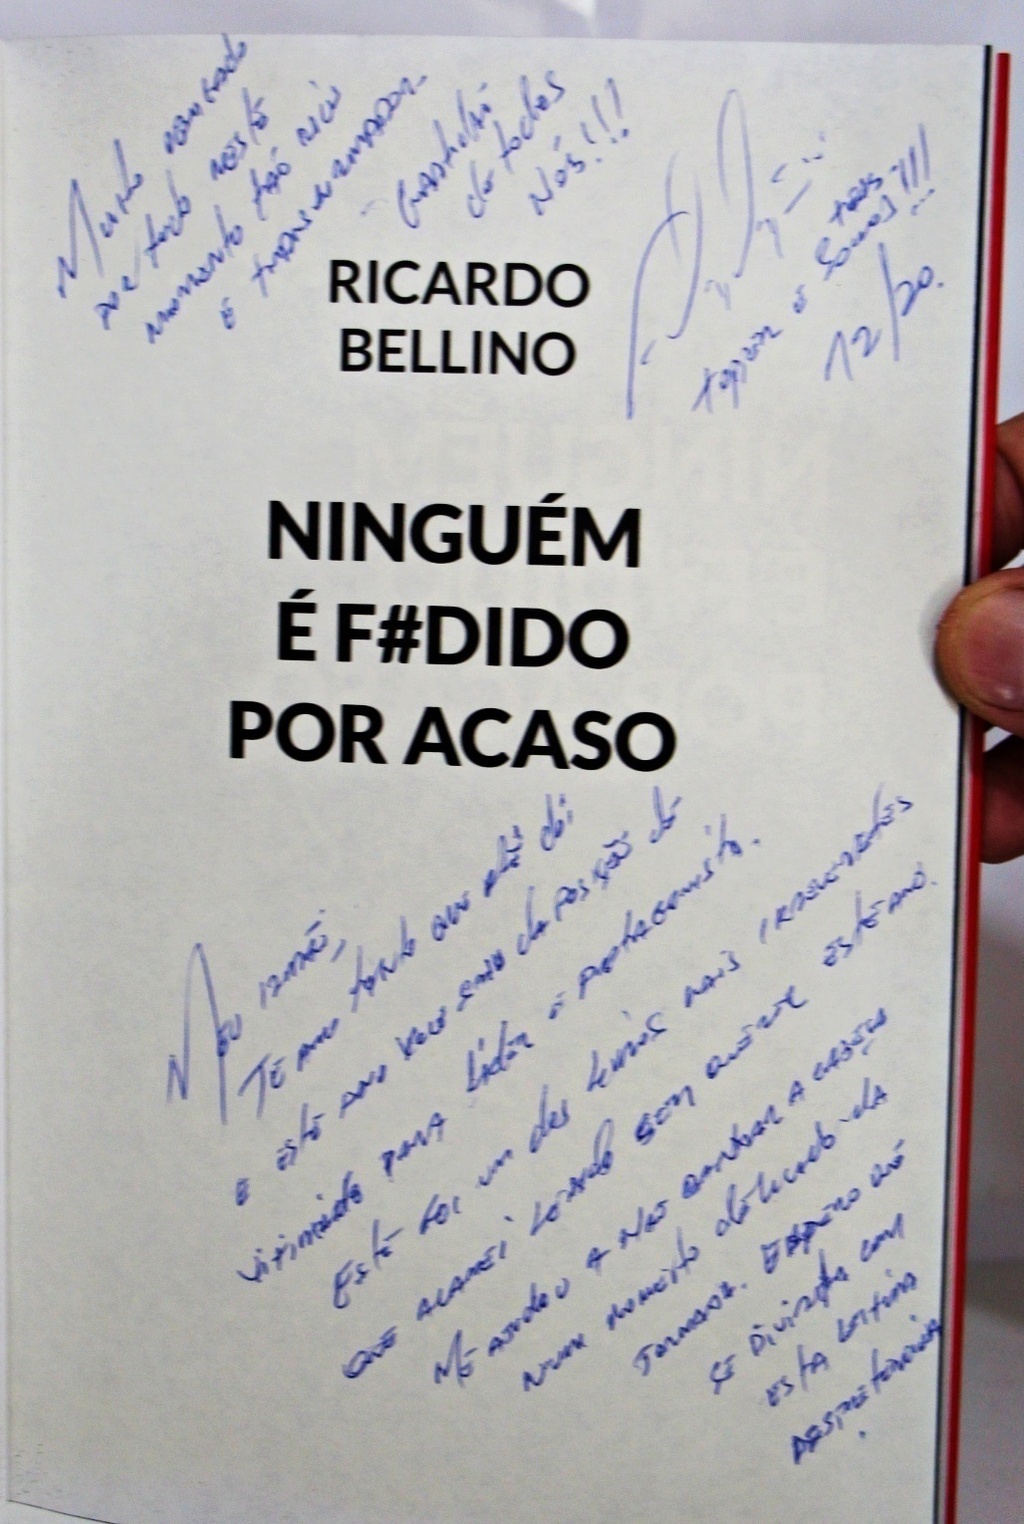 Muito obrigado
por tudo neste
momento tão rico
e transformador.
Gratidão
de todos
nós!!!
topior e
tóos
Somos!!!
12/20.
RICARDO
BELLINO
NINGUÉM
É F#DIDO
POR ACASO
Meu irmão,
Te amo tanto que até dói
e este ano você saiu da posição de
vitimista para líder e protagonista.
Este foi um dos livros mais irreverentes
que acabei lendo sem querer este ano.
Me ajudou a não a cabeça
num momento delicado da
jornada. Espero que
se divirta com
esta leitura
despretensiosa